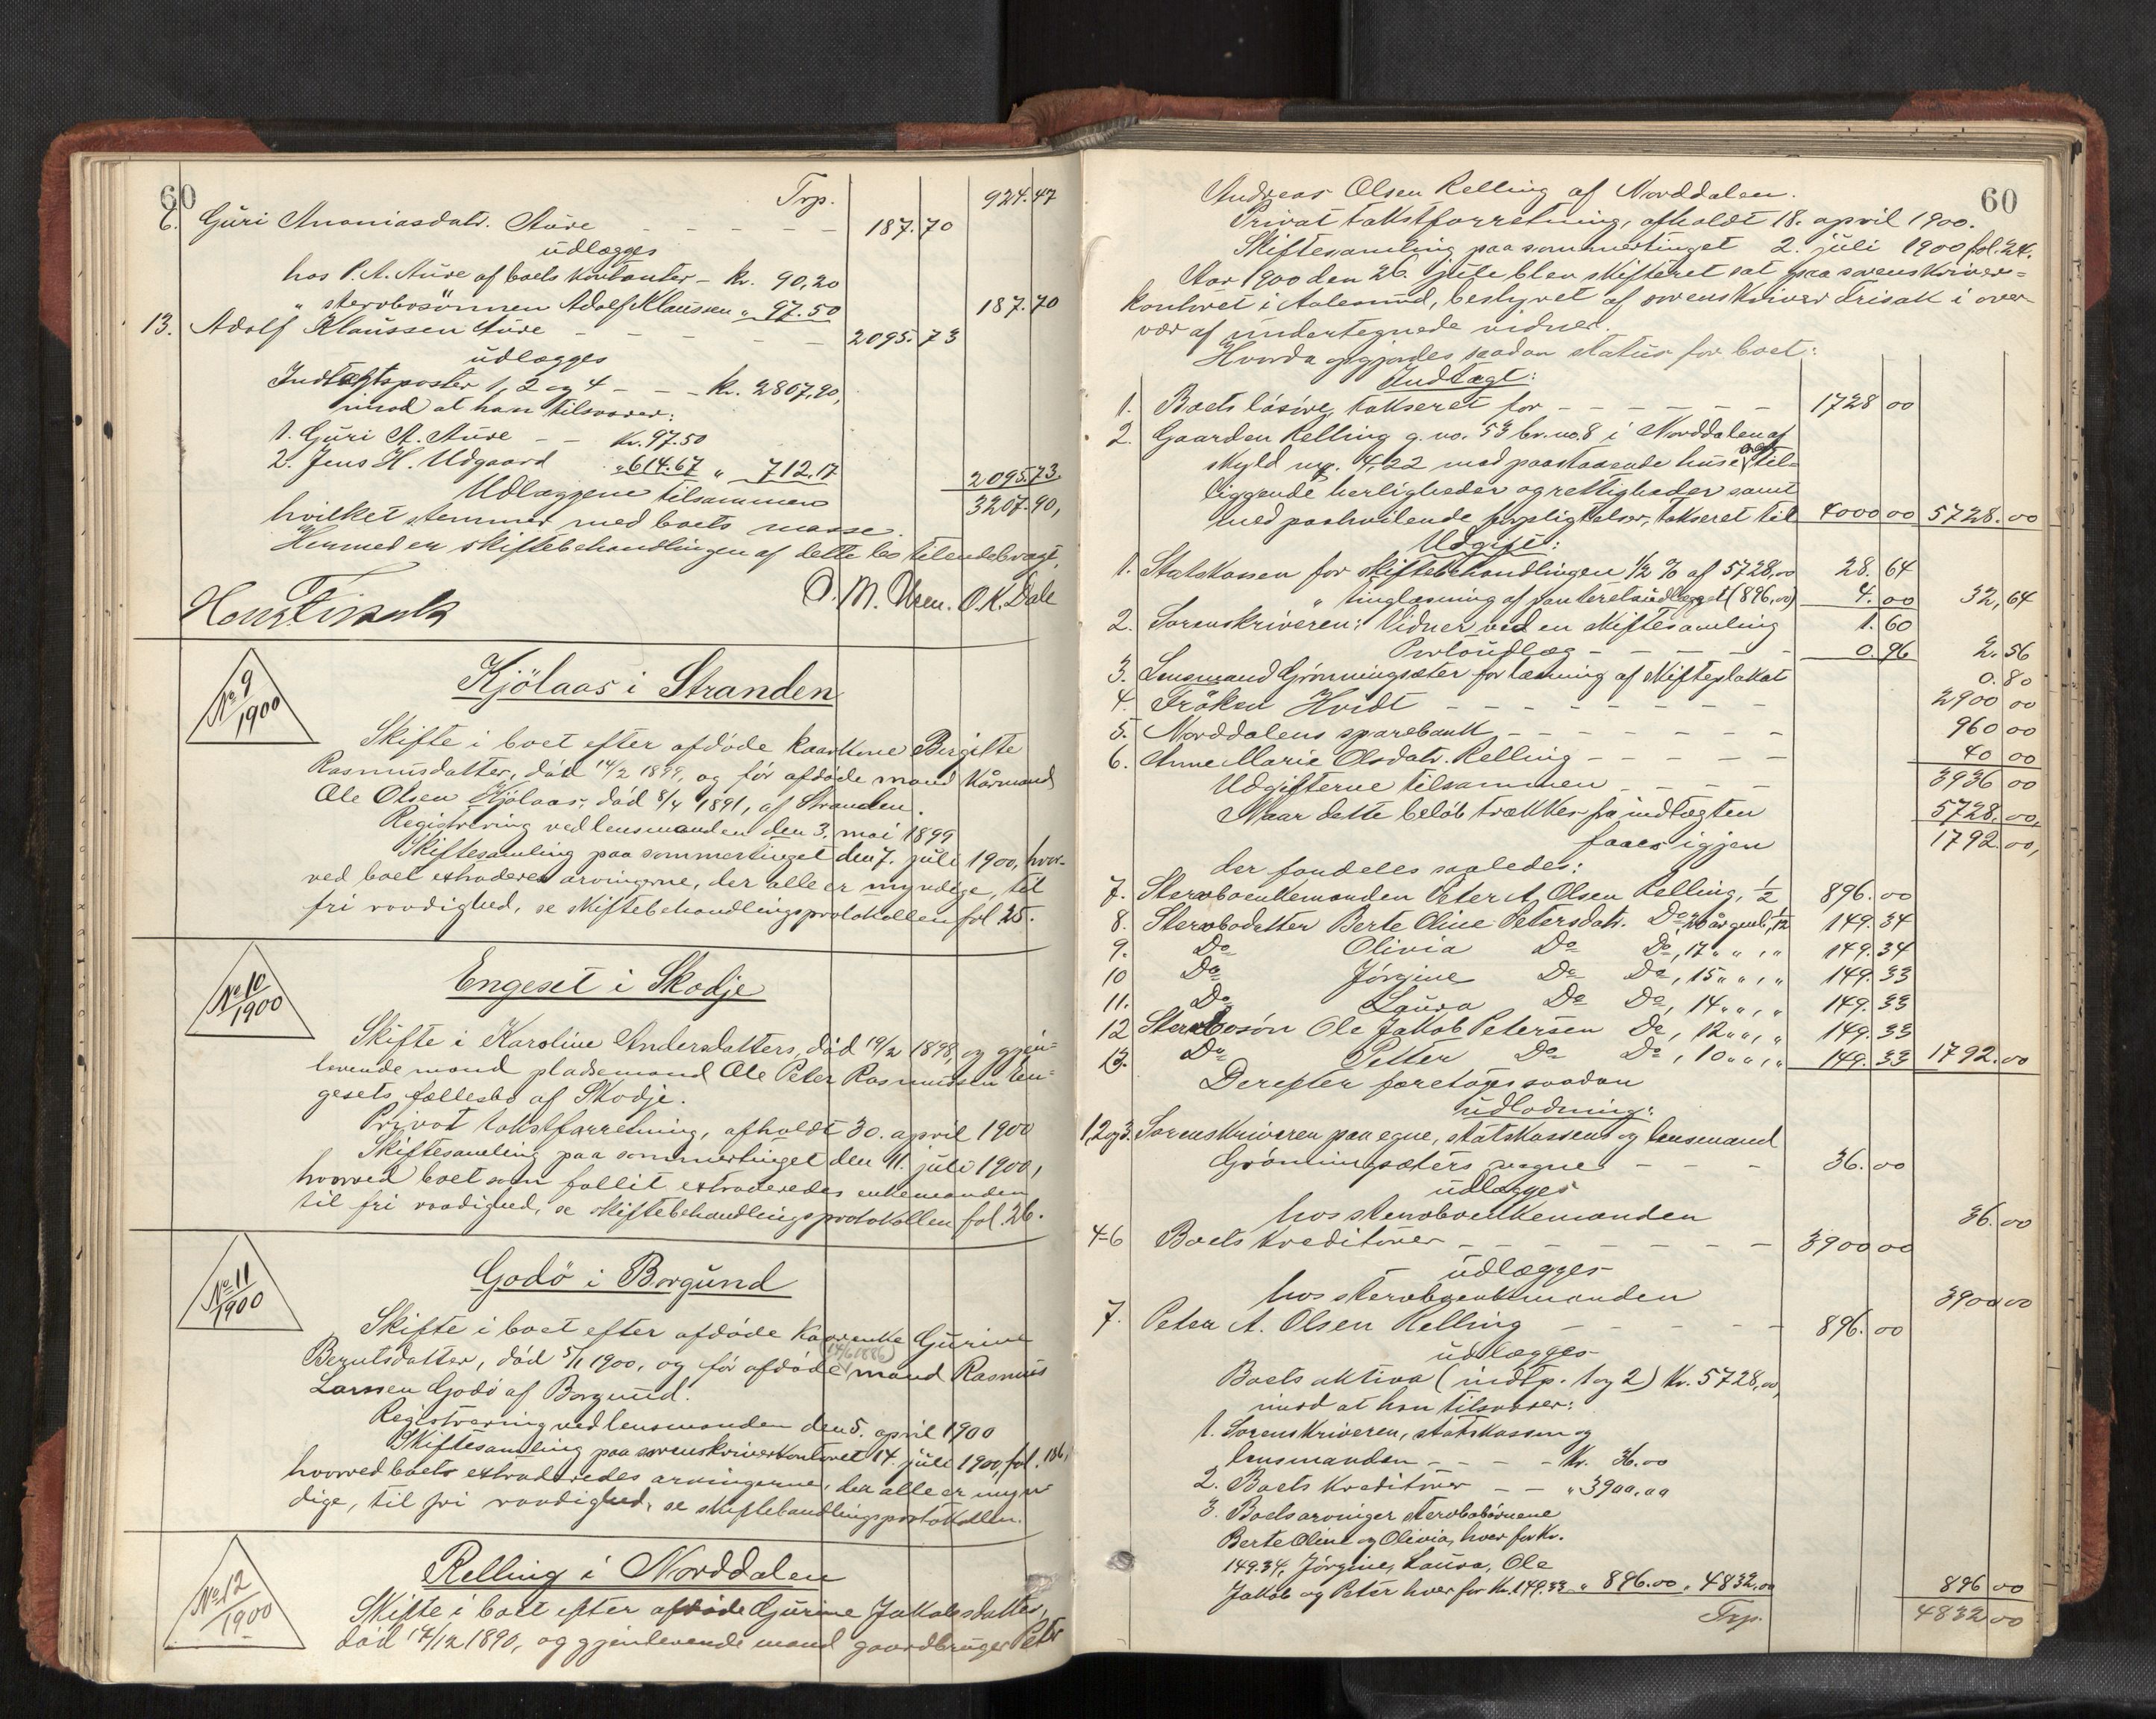 60
Trp. 924.47
6. Guri Ananiasdatr. Aure - - - - - 187.70
udlægges
hos P. A. Aure af boets kontanter - kr. 90,20
" stervbosönnen Adolf Klaussen " 97.50 187.70
13. Adolf Klaussen Aure - - - - - 2095.73
udlægges
Indtægtsposter 1, 2 og 4 - - - kr. 2807,90,
imod at han tilsvarer:
1. Guri A. Aure - - kr. 97.50
2. Jens H. Udgaard " 614.67 " 712.17 2095.73
Udlæggene tilsammen 3207.90,
hvilket stemmer med boets masse.
Hermed er skiftebehandlingen af dette bo tilendebragt.
O. M. Uren. O. K. Dale
No 9
1900
Kjölaas i Stranden
Skifte i boet efter afdöde kaarkone Birgitte
Rasmusdatter, död 14/2 1899, og för afdöde mand kårmand
Ole Olsen Kjölaas, död 8/4 1891, af Stranden.
Registrering ved lensmanden den 3. mai 1899
Skiftesamling paa sommertinget den 7. juli 1900, hvor-
ved boet extraderes arvingerne, der alle er myndige, til
fri raadighed, se skiftebehandlingsprotokollen fol 25.
No 10
1900
Engeset i Skodje
Skifte i Karoline Andersdatters, död 19/2 1898, og gjen-
levende mand pladsemand Ole Peter Rasmussen En-
gesets fællesbo af Skodje.
Privat takstforretning, afholdt 30. april 1900
Skiftesamling paa sommertinget den 11. juli 1900,
hvorved boet som fallit extraderedes enkemanden
til fri raadighed, se skiftebehandlingsprotokollen fol. 26.
No 11
1900
Godö i Borgund
Skifte i boet efter afdöde kaarenke Gurine
(14/6 1886)
Berntsdatter, död 5/1 1900, og för afdöde mand Rasmus
Larssen Godö af Borgund.
Registrering ved lensmanden den 5. april 1900
Skiftesamling paa sorenskriverkontoret 14. juli 1900, fol. 186,
hvorved boet extraderedes arvingerne, der alle er myn-
dige, til fri raadighed, se skiftebehandlingsprotokollen.
No 12
1900
Relling i Norddalen
Skifte i boet efter afdöde Gurine Jakobsdatter,
död 14/12 1890, og gjenlevende mand gaardbruger Peter
60
Andreas Olsen Relling af Norddalen.
Privat takstforretning, afholdt 18. april 1900.
Skiftesamling paa sommertinget 2. juli 1900 fol. 24.
Aar 1900 den 26. juli blev skifteret sat paa sorenskriver-
kontoret i Aalesund, bestyret af sorenskriver Frisak i over-
vær af undertegnede vidner.
Hvorda opgjordes saadan status for boet:
Indtægt:
1. Boets lösöre, takseret for - - - - - 1728 00
2. Gaarden Relling g. no. 53 br. no. 8 i Norddalen af
skyld mrk. 4,22 med paastaaende huse og til-
liggende herligheder og rettigheder samt
med paahvilende forpligtelser, takseret til 4000 00 5728.00
Udgift:
1. Statskassen for skiftebehandlingen 1/2 % af 5728,00 28.64
" tinglæsning af panteretsudlægget (896,00) 4.00 32,64
2. Sorenskriveren: Vidner ved en skiftesamling 1.60
Portoudlæg - - - - - 0.96 2.56
3. Lensmand Grönningsæter for læsning af skifteplakat 0.80
4. Fröken Hvidt - - - - - 2900 00
5. Norddalens sparebank - - - - - 960 00
6. Anne Marie Olsdatr. Relling - - - - 40 00
Udgifterne tilsammen - - - - 3936 00
Naar dette belöb trækkes fra indtægten 5728.00,
faaes igjen 1792.00,
der fordeles saaledes:
7. Stervboenkemanden Peter A. Olsen Relling, 1/2 896.00
8. Stervbodatter Berte Oline Petersdatr. Do, 20 år gml, 1/12 149.34
9. Do Olivia Do Do, 17 " " , " 149.34
10 Do Jörgine Do Do, 15 " " , " 149.33
11. Do Laura Do Do, 14 " " , " 149.33
12 Stervbosön Ole Jakob Petersen Do, 12 " " , " 149.33
13. Do Petter Do Do, 10 " " , " 149.33 1792.00
Derefter foretoges saadan
udlodning:
1, 2 og 3. Sorenskriveren paa egne, statskassens og lensmand
Grönningsæters vegne - - - 36.00
udlægges
hos stervboenkemanden 36.00
4-6 Boets kreditorer - - - - - 3900 00
udlægges
hos stervboenkemanden 3900 00
7. Peter A. Olsen Relling - - - - - 896.00
udlægges
Boets aktiva (indtp. 1 og 2) kr. 5728,00,
imod at han tilsvarer:
1. Sorenskriveren, statskassen og
lensmanden - - - - kr. 36.00
2. Boets kreditorer - - " 3900,00
3. Boets arvinger stervbobörnene
Berte Oline og Olivia, hver for kr.
149.34, Jörgine, Laura, Ole
Jakob og Peter hver for kr. 149.33 " 896.00 " 4832,00 896 00
Trp. 4832 00